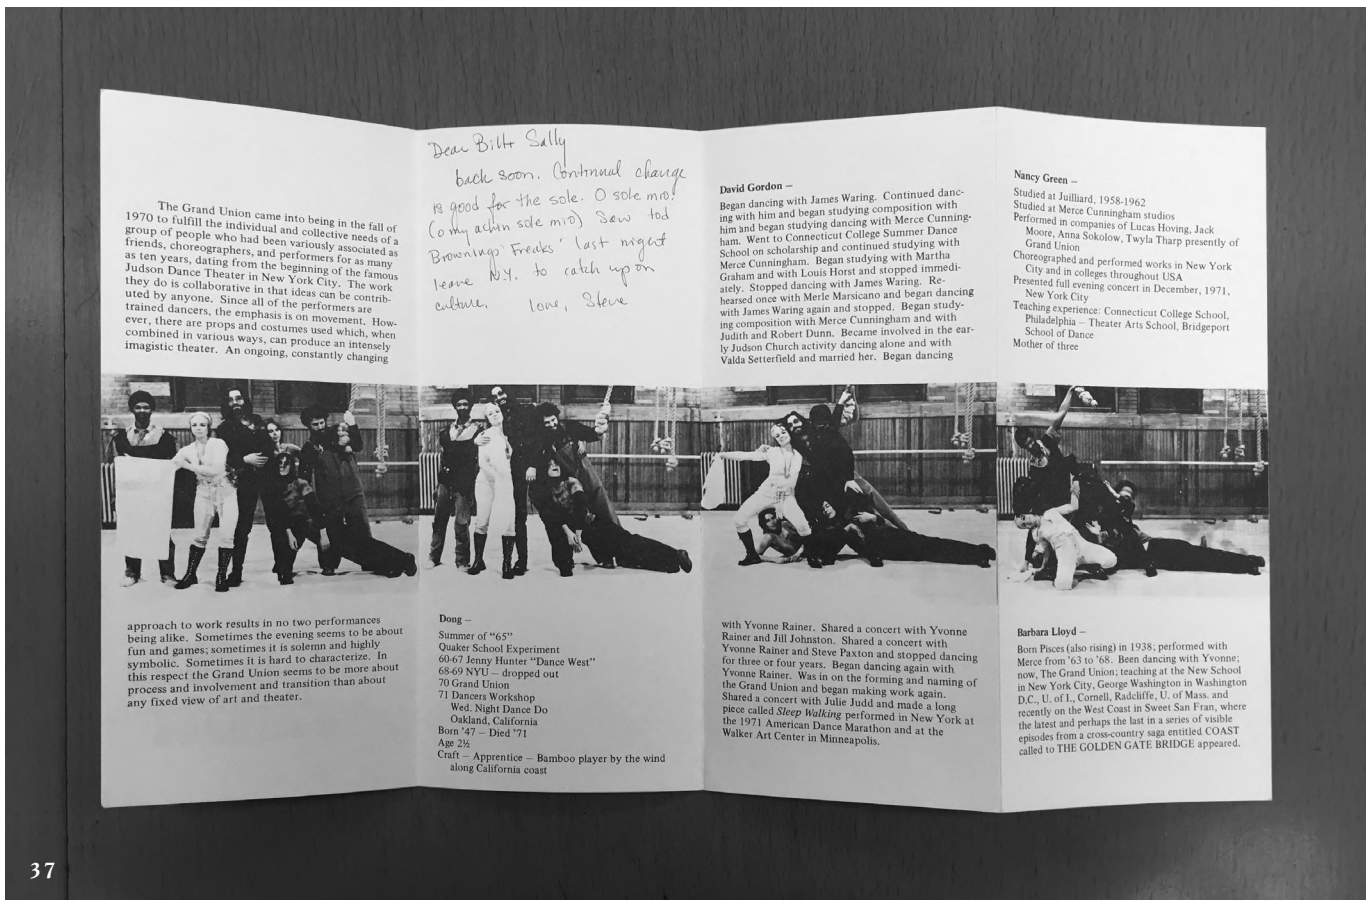 The Grand Union came into being in the fall of
1970 to fulfill the individual and collective needs of a
group of people who had been variously associated as
friends, choreographers, and performers for as many
as ten years, dating from the beginning of the famous
Judson Dance Theater in New York City. The work
they do is collaborative in that ideas can be contrib-
uted by anyone. Since all of the performers are
trained dancers, the emphasis is on movement. How-
ever, there are props and costumes used which, when
combined in various ways, can produce an intensely
imagistic theater. An ongoing, constantly changing
approach to work results in no two performances
being alike. Sometimes the evening seems to be about
fun and games; sometimes it is solemn and highly
symbolic. Sometimes it is hard to characterize. In
this respect the Grand Union seems to be more about
process and involvement and transition than about
any fixed view of art and theater.
Dear Bill + Sally
back soon. Continual change
is good for the sole. O sole mio!
(o my achin sole mio) Saw tod
Brownings 'Freaks' last night
leave N.Y. to catch up on
culture. love, Steve
Dong –
Summer of "65"
Quaker School Experiment
60-67 Jenny Hunter "Dance West"
68-69 NYU – dropped out
70 Grand Union
71 Dancers Workshop
Wed. Night Dance Do
Oakland, California
Born '47 – Died '71
Age 2½
Craft – Apprentice – Bamboo player by the wind
along California coast
David Gordon –
Began dancing with James Waring. Continued danc-
ing with him and began studying composition with
him and began studying dancing with Merce Cunning-
ham. Went to Connecticut College Summer Dance
School on scholarship and continued studying with
Merce Cunningham. Began studying with Martha
Graham and with Louis Horst and stopped immedi-
ately. Stopped dancing with James Waring. Re-
hearsed once with Merle Marsicano and began dancing
with James Waring again and stopped. Began study-
ing composition with Merce Cunningham and with
Judith and Robert Dunn. Became involved in the ear-
ly Judson Church activity dancing alone and with
Valda Setterfield and married her. Began dancing
with Yvonne Rainer. Shared a concert with Yvonne
Rainer and Jill Johnston. Shared a concert with
Yvonne Rainer and Steve Paxton and stopped dancing
for three or four years. Began dancing again with
Yvonne Rainer. Was in on the forming and naming of
the Grand Union and began making work again.
Shared a concert with Julie Judd and made a long
piece called Sleep Walking performed in New York at
the 1971 American Dance Marathon and at the
Walker Art Center in Minneapolis.
Nancy Green –
Studied at Juilliard, 1958-1962
Studied at Merce Cunningham studios
Performed in companies of Lucas Hoving, Jack
Moore, Anna Sokolow, Twyla Tharp presently of
Grand Union
Choreographed and performed works in New York
City and in colleges throughout USA
Presented full evening concert in December, 1971,
New York City
Teaching experience: Connecticut College School,
Philadelphia – Theater Arts School, Bridgeport
School of Dance
Mother of three
Barbara Lloyd –
Born Pisces (also rising) in 1938; performed with
Merce from '63 to '68. Been dancing with Yvonne;
now, The Grand Union; teaching at the New School
in New York City, George Washington in Washington
D.C., U. of I., Cornell, Radcliffe, U. of Mass. and
recently on the West Coast in Sweet San Fran, where
the latest and perhaps the last in a series of visible
episodes from a cross-country saga entitled COAST
called to THE GOLDEN GATE BRIDGE appeared.
37